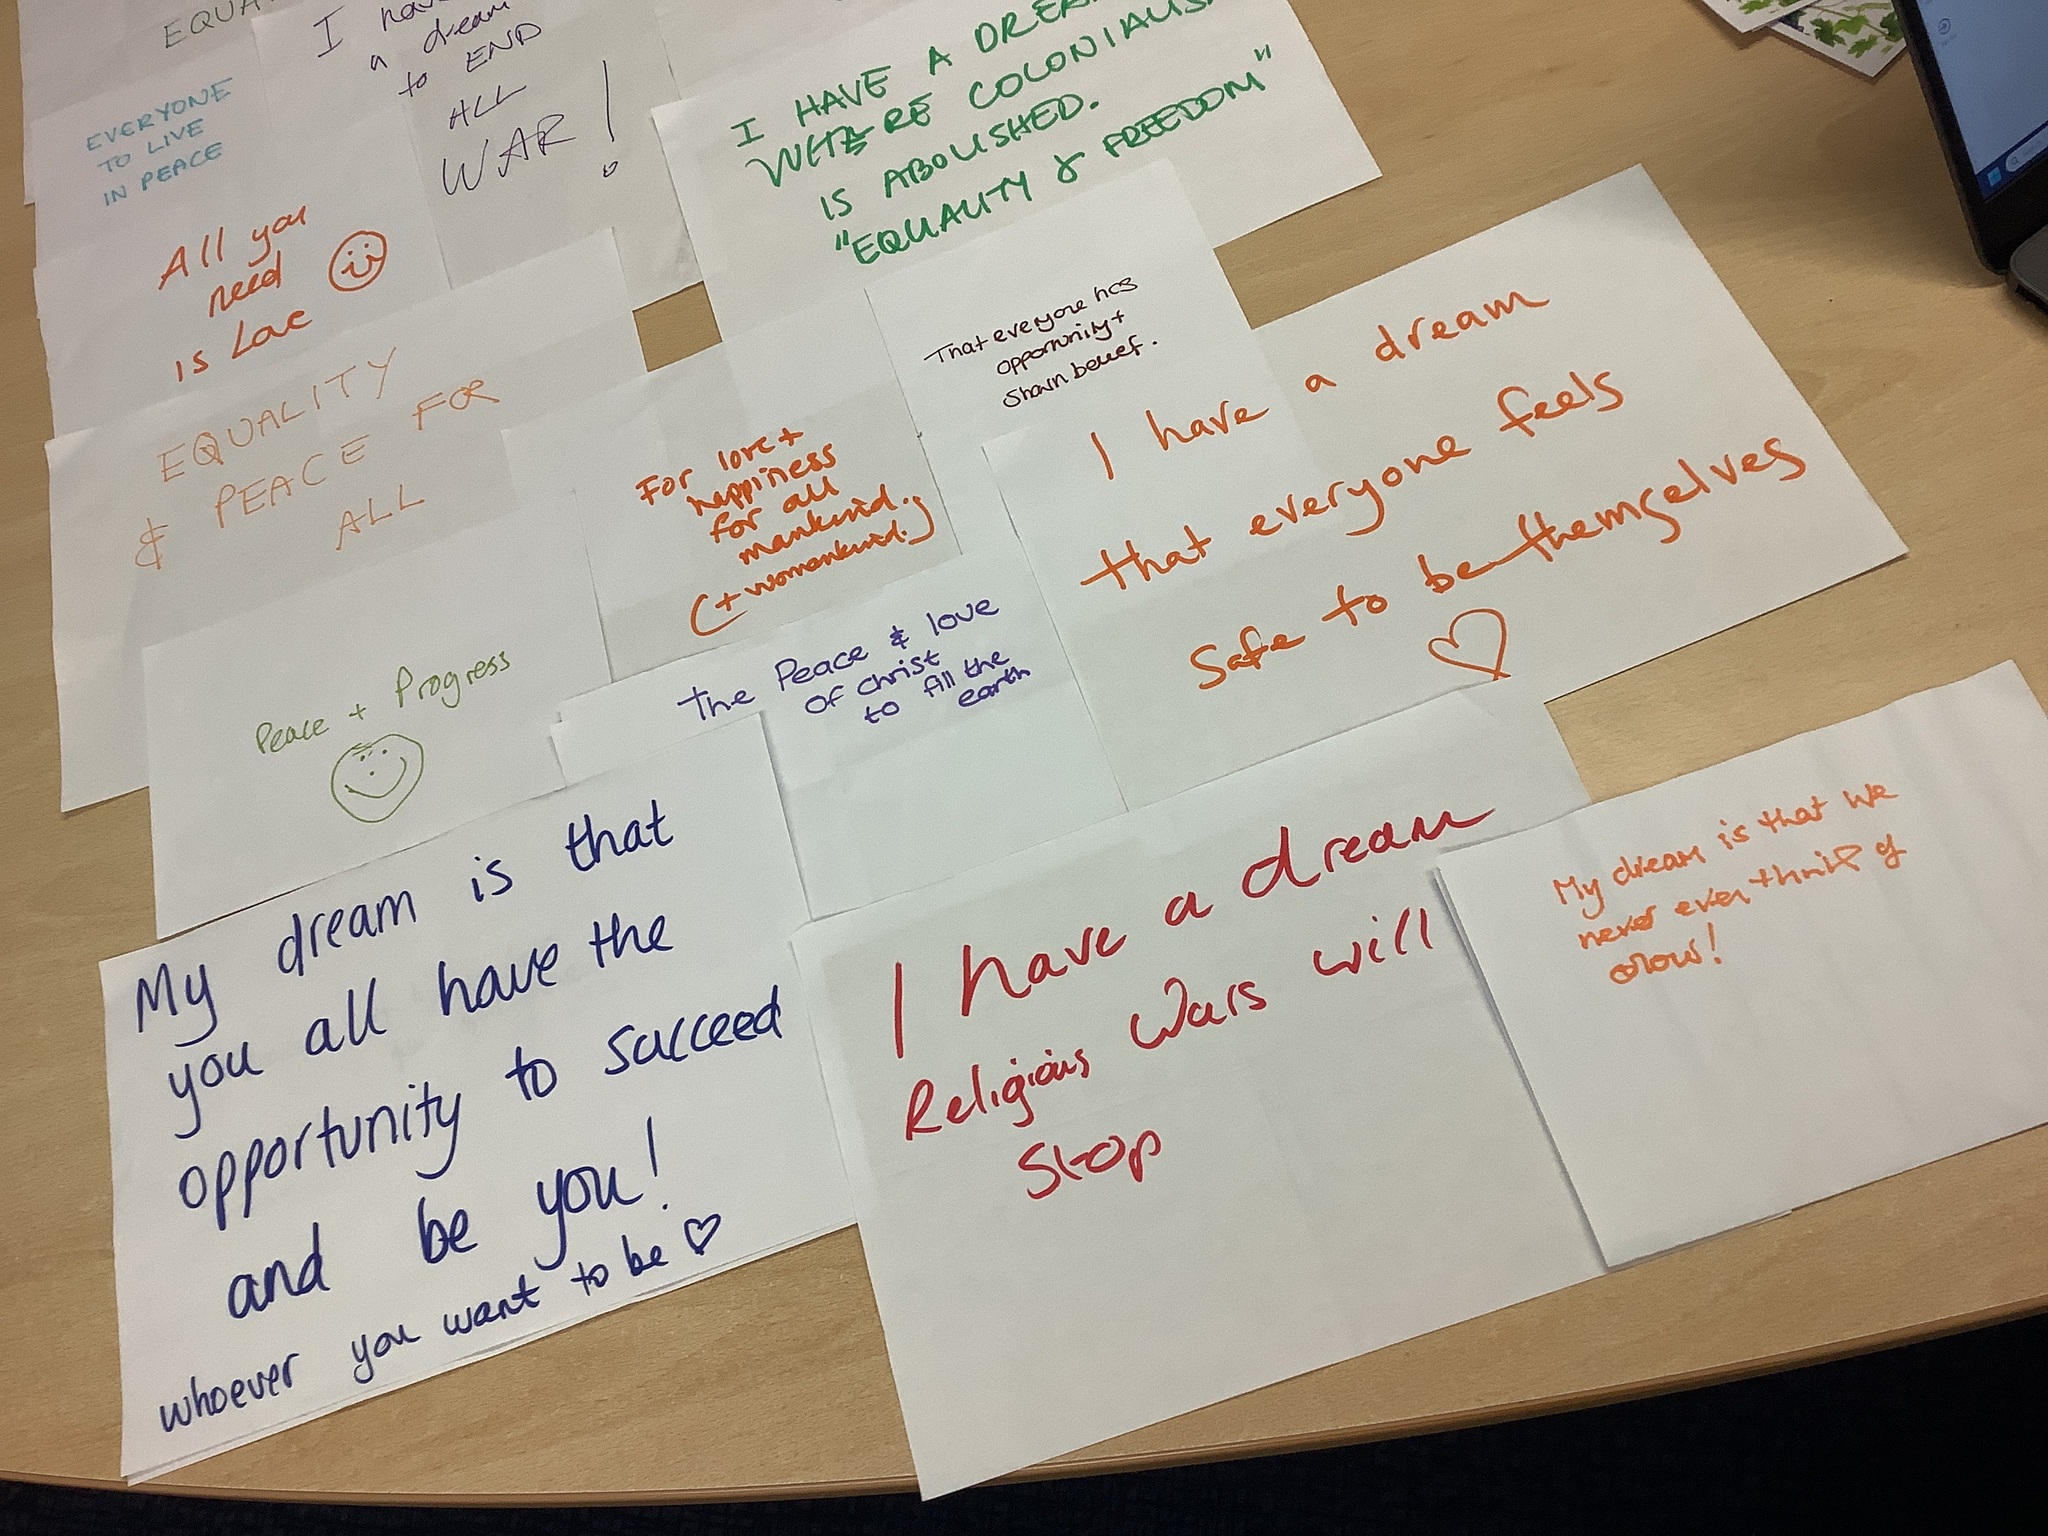 EQUA
EVERYONE
TO LIVE
IN PEACE
I have
a dream
to END
ALL
WAR!
I HAVE A DREAM
WHERE COLONIALIS
IS ABOLISHED.
"EQUALITY & FREEDOM"
All you
need
is Love
EQUALITY
& PEACE FOR
ALL
That everyone has
opportunity +
shown belief.
For love +
happiness
for all
mankind.
(+ womankind.)
I have a dream
that everyone feels
Safe to be themselves
The Peace & love
of Christ
to fill the
earth
Peace + Progress
My dream is that
you all have the
opportunity to succeed
and be you!
whoever you want to be
I have a dream
Religious Wars will
Stop
My dream is that we
never even think of
colour!